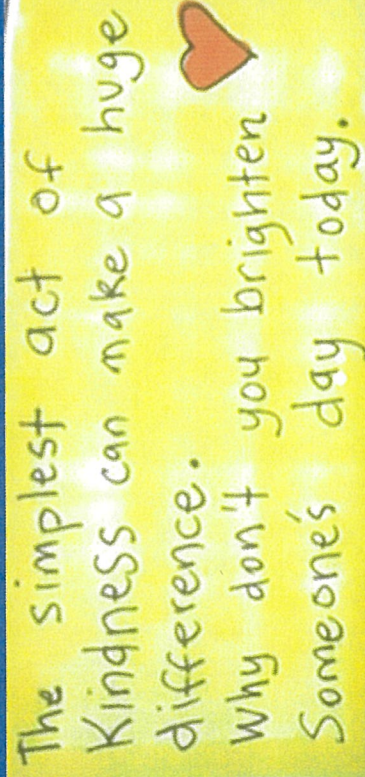 The simplest act of
Kindness can make a huge
difference.
Why don't you brighten
Someone's day today.